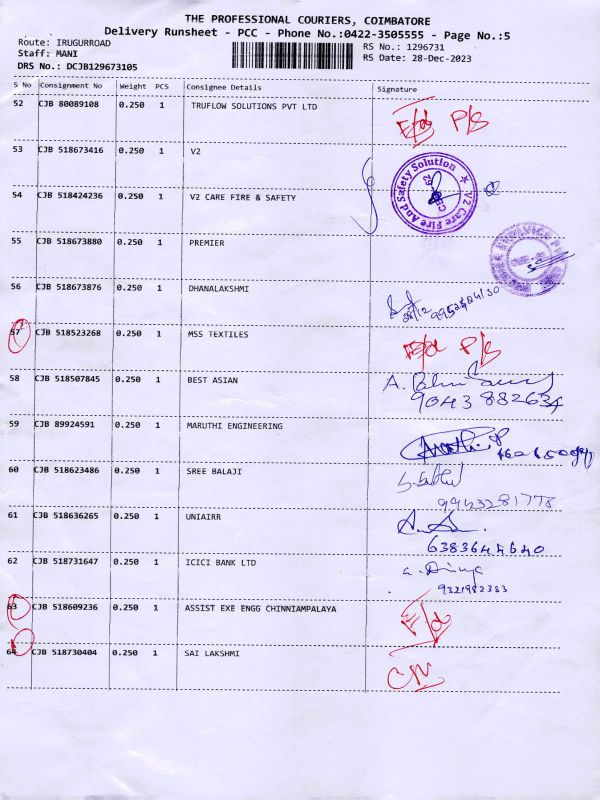 THE PROFESSIONAL COURIERS, COIMBATORE
Delivery Runsheet - PCC - Phone No.:0422-3505555 - Page No.:5
Route: IRUGURROAD
Staff: MANI
DRS No.: DCJB129673105
RS No.: 1296731
RS Date: 28-Dec-2023
S No Consignment No Weight PCS Consignee Details Signature
52 CJB 80089108 0.250 1 TRUFLOW SOLUTIONS PVT LTD F/d P/S
53 CJB 518673416 0.250 1 V2
V2 Care Fire And Safety Solution
54 CJB 518424236 0.250 1 V2 CARE FIRE & SAFETY
55 CJB 518673880 0.250 1 PREMIER
56 CJB 518673876 0.250 1 DHANALAKSHMI
28/12
57 CJB 518523268 0.250 1 MSS TEXTILES F/d P/S
58 CJB 518507845 0.250 1 BEST ASIAN A.
9043882634
59 CJB 89924591 0.250 1 MARUTHI ENGINEERING
60 CJB 518623486 0.250 1 SREE BALAJI
9953281778
61 CJB 518636265 0.250 1 UNIAIRR
6383644640
62 CJB 518731647 0.250 1 ICICI BANK LTD a. Divya
9321982383
63 CJB 518609236 0.250 1 ASSIST EXE ENGG CHINNIAMPALAYA F/d
64 CJB 518730404 0.250 1 SAI LAKSHMI CN